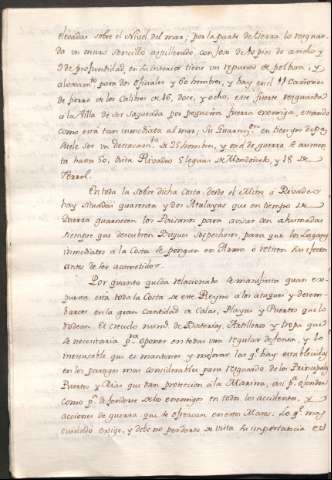 elevadas sobre el nivel del mar, por la parte de tierra lo resguar-
da un muro sencillo aspillerado con foso de 40 pies de ancho y
9 de profundidad, en su interior tiene un repuesto de polvora, y
alojam.to para dos oficiales y 60 hombres, y hay en el 19 Cañones
de fierro de los Calibres de 16, doce, y ocho, este fuerte resguarda
a la Villa de ser saqueada por pequeña fuerza enemiga, estando
como está tan inmediata al mar, su Guarnic.n en tiempo de paz
suele ser un destacam.to de 25 hombres, y en el de guerra se aumen-
ta hasta 50, dista Rivadeo 5 leguas de Mondoñedo, y 18 de
Ferrol.
En toda la sobre dicha Costa desde el Miño a Rivadeo
hay Guardia y Atalayas que en tiempo de
Guerra guarnecen los Paisanos para avisar con ahumadas
siempre que descubren Buques sospechosos, para que los Lugares
inmediatos a la Costa se pongan en Arma o retiren sus efectos
antes de ser acometidos.
Por quanto queda relacionado se manifiesta quan ex-
puesta está toda la Costa de este Reyno a los ataques y desem-
barcos en la gran Cantidad de Calas, Playas y Puertos que lo
rodean. El crecido num.o de Baterias, Artilleros y tropa que
se necesitaria p.a oponer en todas una regular defensa, y lo
indispensable que es mantener y mejorar las q.e hay establecidas
en los parages mas considerables para resguardo de los Principales
Puertos y Rias que dan proteccion a la Marina, asi p.a ofender
como p.a defenderse de los enemigos en todos los accidentes, y
acciones de guerra que se ofrezcan en estos Mares: Lo q.e mas
cuidado exige, y debe no perderse de vista su importancia es el